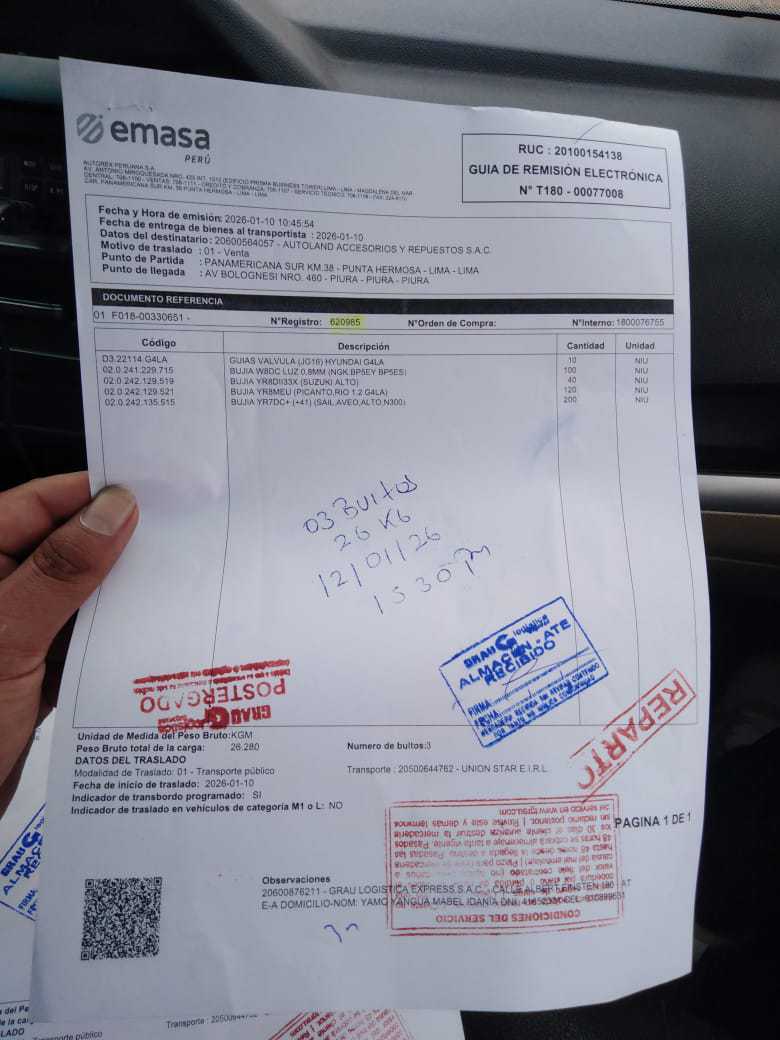 emasa
PERÚ
AUTOREX PERUANA S.A.
RUC : 20100154138
GUIA DE REMISIÓN ELECTRÓNICA
N° T180 - 00077008
Fecha y Hora de emisión: 2026-01-10 10:45:54
Fecha de entrega de bienes al transportista : 2026-01-10
Datos del destinatario : 20600564057 - AUTOLAND ACCESORIOS Y REPUESTOS S.A.C.
Motivo de traslado : 01 - Venta
Punto de Partida : PANAMERICANA SUR KM.38 - PUNTA HERMOSA - LIMA - LIMA
Punto de llegada : AV BOLOGNESI NRO. 460 - PIURA - PIURA - PIURA
DOCUMENTO REFERENCIA
01 F018-00330651 - N°Registro: 620985 N°Orden de Compra: N°Interno: 1800076755
Código Descripción Cantidad Unidad
D3.22114.G4LA GUIAS VALVULA (JG16) HYUNDAI G4LA 10 NIU
02.0.241.229.715 BUJIA W8DC LUZ 0,8MM (NGK.BP5EY BP5ES) 100 NIU
02.0.242.129.519 BUJIA YR8DII33X (SUZUKI ALTO) 40 NIU
02.0.242.129.521 BUJIA YR8MEU (PICANTO,RIO 1.2 G4LA) 120 NIU
02.0.242.135.515 BUJIA YR7DC+ (+41) (SAIL,AVEO,ALTO,N300) 200 NIU
03 Bultos
26 KG
12/01/26
1530 pm
GRAU logistica
ALMACEN - ATE
RECIBIDO
FIRMA:
FECHA:
GRAU logistica
POSTERGADO
REPARTO
Unidad de Medida del Peso Bruto: KGM
Peso Bruto total de la carga: 26.280 Numero de bultos:3
DATOS DEL TRASLADO
Modalidad de Traslado: 01 - Transporte público Transporte : 20500644762 - UNION STAR E.I.R.L.
Fecha de inicio de traslado: 2026-01-10
Indicador de transbordo programado: SI
Indicador de traslado en vehículos de categoría M1 o L: NO
PAGINA 1 DE 1
CONDICIONES DEL SERVICIO
Observaciones
20600876211 - GRAU LOGISTICA EXPRESS S.A.C.
E-A DOMICILIO-NOM: YAMO YANGUA MABEL IDANIA DNI:
Transporte público
Transporte :